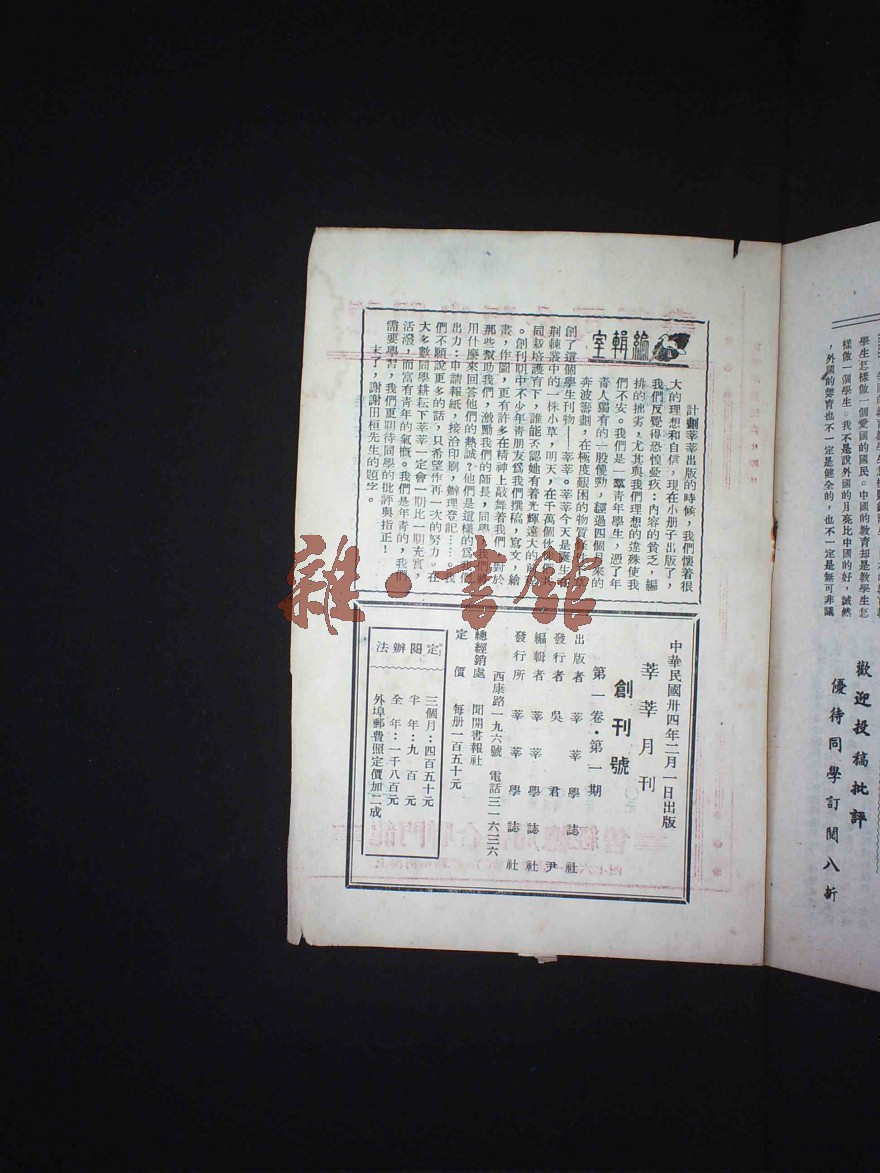 編輯室
計劃莘莘出版的時候，我們懷着很
大的理想和自信，現在小册子出版了，
我們反覺得恐惶憂疚：內容的貧乏，編
排的拙劣，尤其與我們理想的違殊使我
們不安。我們是一羣青年學生，憑了年
青人獨有的一股傻勁，經過四個月來的
奔波籌劃，在極度艱困的物質
創了這個學生刊物——莘莘。莘莘今天是
荆棘叢中的一株小草，明天，在千萬個
同栽培護育下，誰能否認她有着光輝遠大的前
。創刊期中不少年青朋友爲我們撰稿，寫文，繪
畫，作圖，更有許多在精神上鼓舞着我們，對於
那些幫助我們，激勵我們的師長，同學，我們將
用什麼來回答他們的熱誠？他們是這樣的爲
出力：申請報紙，接洽印刷，辦理登記……。我
們不願說更多的話，只希望作再一次的努力。在
大多數同學耕耘下莘莘一定會一期比一期充實，
活潑，而富有青年的氣概。我們是年青的，我們
需要學習，我們更期待同學的批評與指正！
末了，謝謝田桓先生的題字。
中華民國卅四年二月一日出版
莘莘月刊
創刊號
第一卷・第一期
出版者 莘莘學誌社
發行者 吳君尹
編輯者 莘莘學誌社
發行所 莘莘學誌社
西康路一九六號 電話三一六三六
總經銷處 聞開書報社
定價 每册一百五十元
定閱辦法
三個月：四百五十元
半年：九百元
全年：一千八百元
外埠郵費照定價加二成
雜・書館
學生怎樣做一個愛國的國民。中國的教育却是教學生怎
樣做一個學生。我不是說外國的月亮比中國的好，誠然
，外國的教育也不一定是健全的，也不一定是無可非議
歡迎投稿批評
優待同學訂閱八折